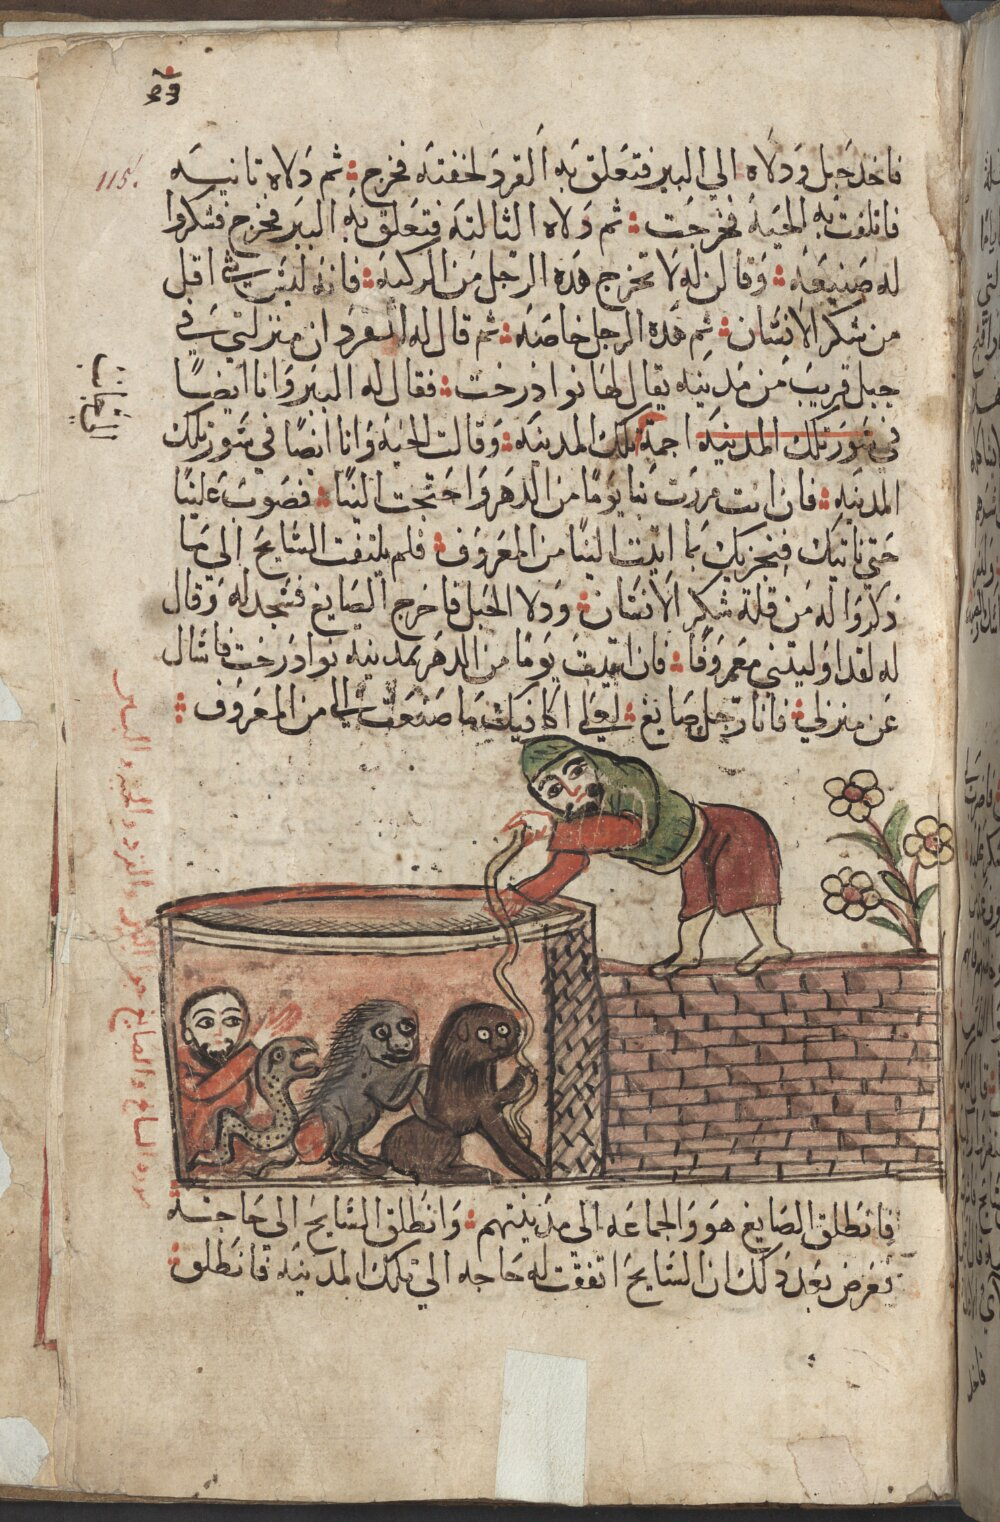 115.
فاخد حبل ودلاه الي البير فتعلق به القرد لخفته فخرج ثم دلاه تانيه
فالتفت به الحية فخرجت ثم دلاه الثالثه فتعلق به الببر فخرج فشكروا
له صنيعه وقالن له لا تخرج هده الرجل من الركيه فانه ليس شي اقل
من شكر الانسان ثم هده الرجل خاصه ثم قال له القرد ان منزلتي في
جبل قريب من مدينه يقال لها نوادرخت فقال له الببر وانا ايضا
في سور تلك المدينه اجمة تلك المدينه وقالت الحيه وانا ايضا في سور تلك
المدينه فان انت مررت بنا يوما من الدهر واحتجت الينا فصوت علينا
حتي ناتيك فنجزيك بما اتيت الينا من المعروف فلم يلتفت السايح الي ما
دكروا له من قلة شكر الانسان ودلا الحبل فاخرج الصايغ فسجد له وقال
له لقد اوليتني معروفا فان اتيت يوما من الدهر بمدينه نوادرخت فاسال
عن منزلي فانا رجل صايغ لعلي اكافيك ما صنعت الي من المعروف
صورة السايح والصايغ
فانطلق الصايغ هو والجماعه الى مدينتهم وانطلق السايح الي حاجته
فعرض بعد دلك ان السايح اتفقت له حاجه الي تلك المدينه فانطلق